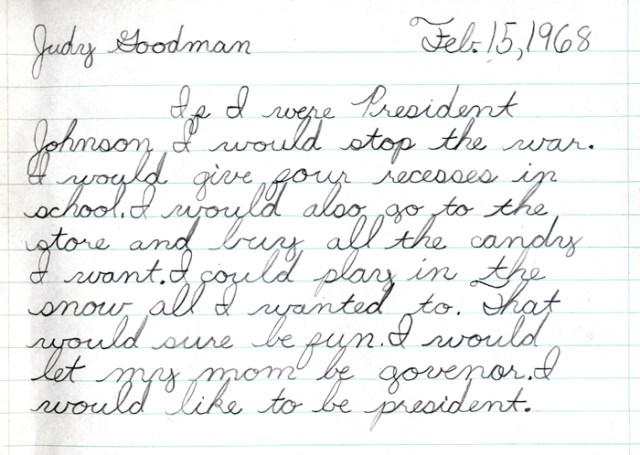 Judy Goodman Feb. 15, 1968
If I were President
Johnson I would stop the war.
I would give four recesses in
school. I would also go to the
store and buy all the candy
I want. I could play in the
snow all I wanted to. That
would sure be fun. I would
let my mom be govenor. I
would like to be president.